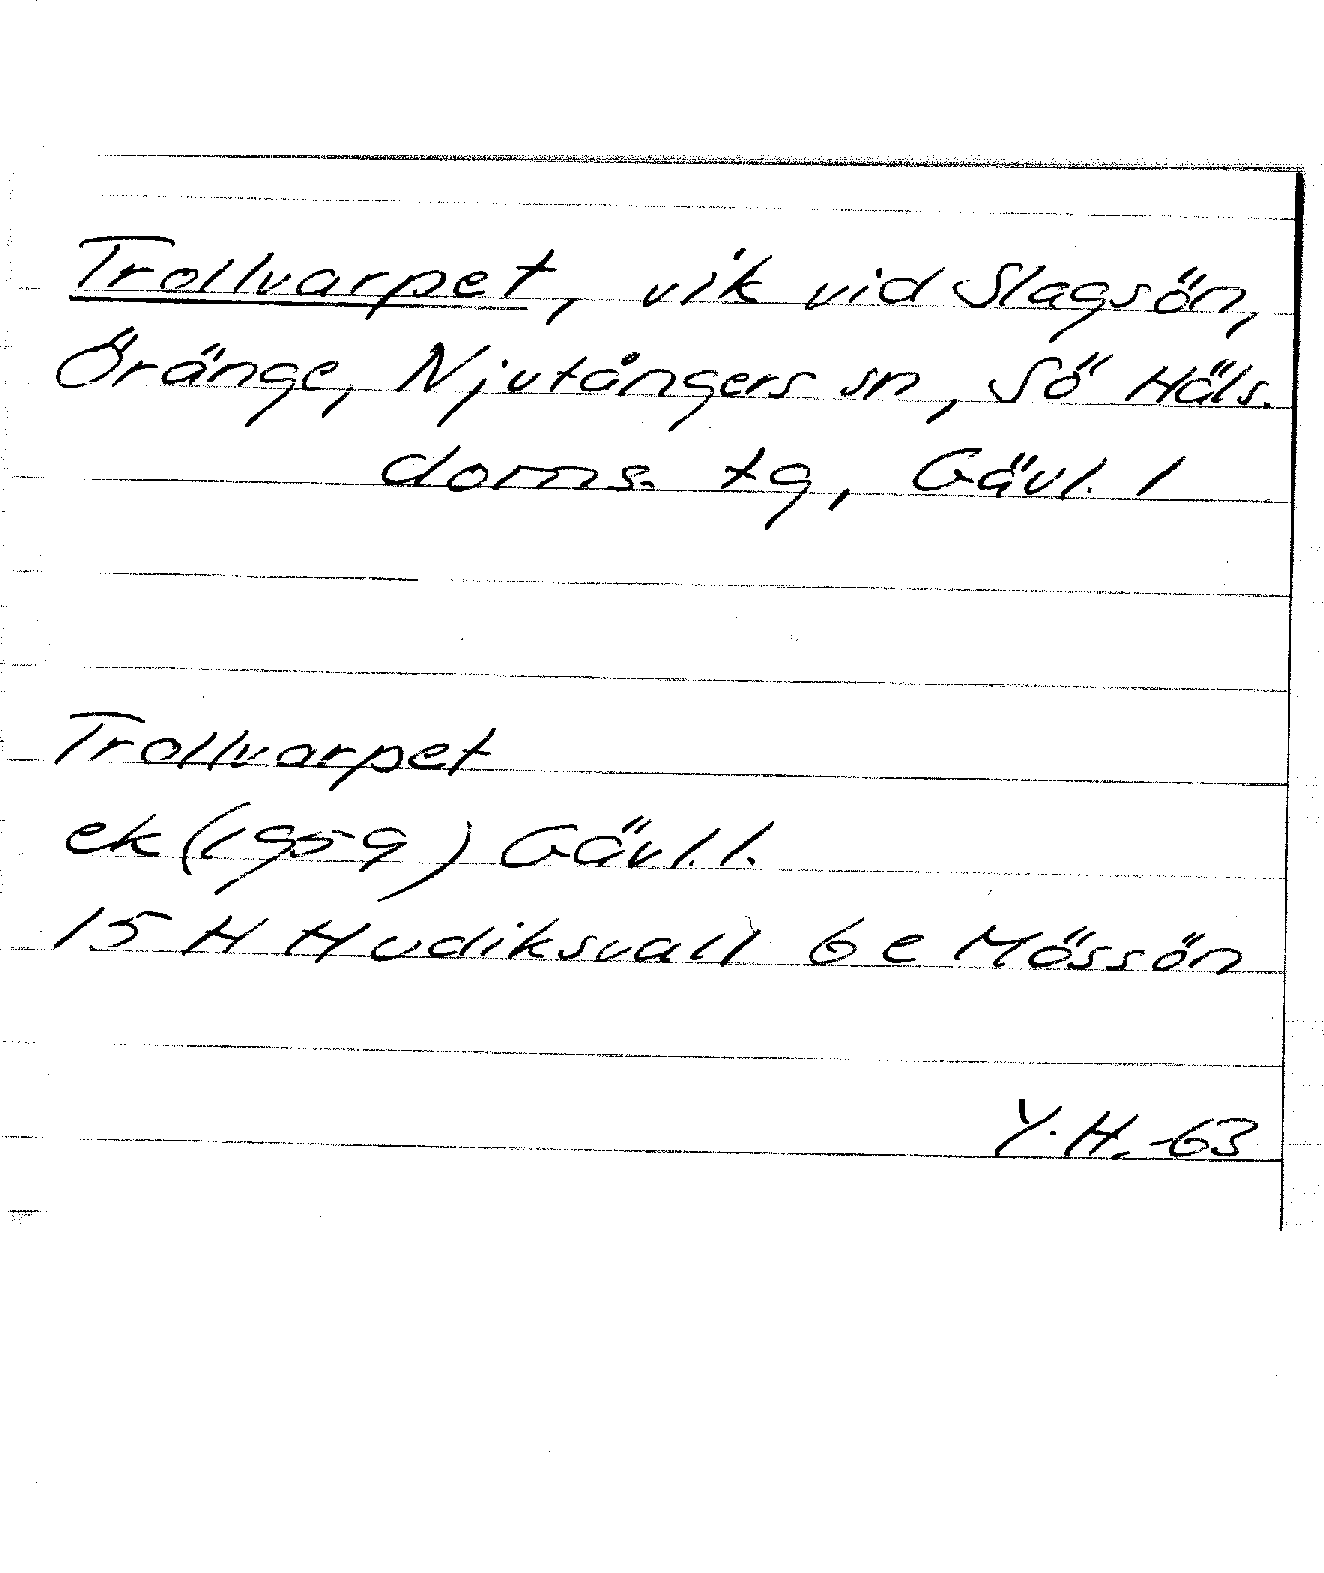 Trollvarpet, vik vid Slagsön,
Öränge, Njutångers sn, Sö Häls.
doms. tg, Gävl. l
Trollvarpet
ek (1959) Gävl. l.
15 H Hudiksvall 6 e Mössön
Y. H. -63